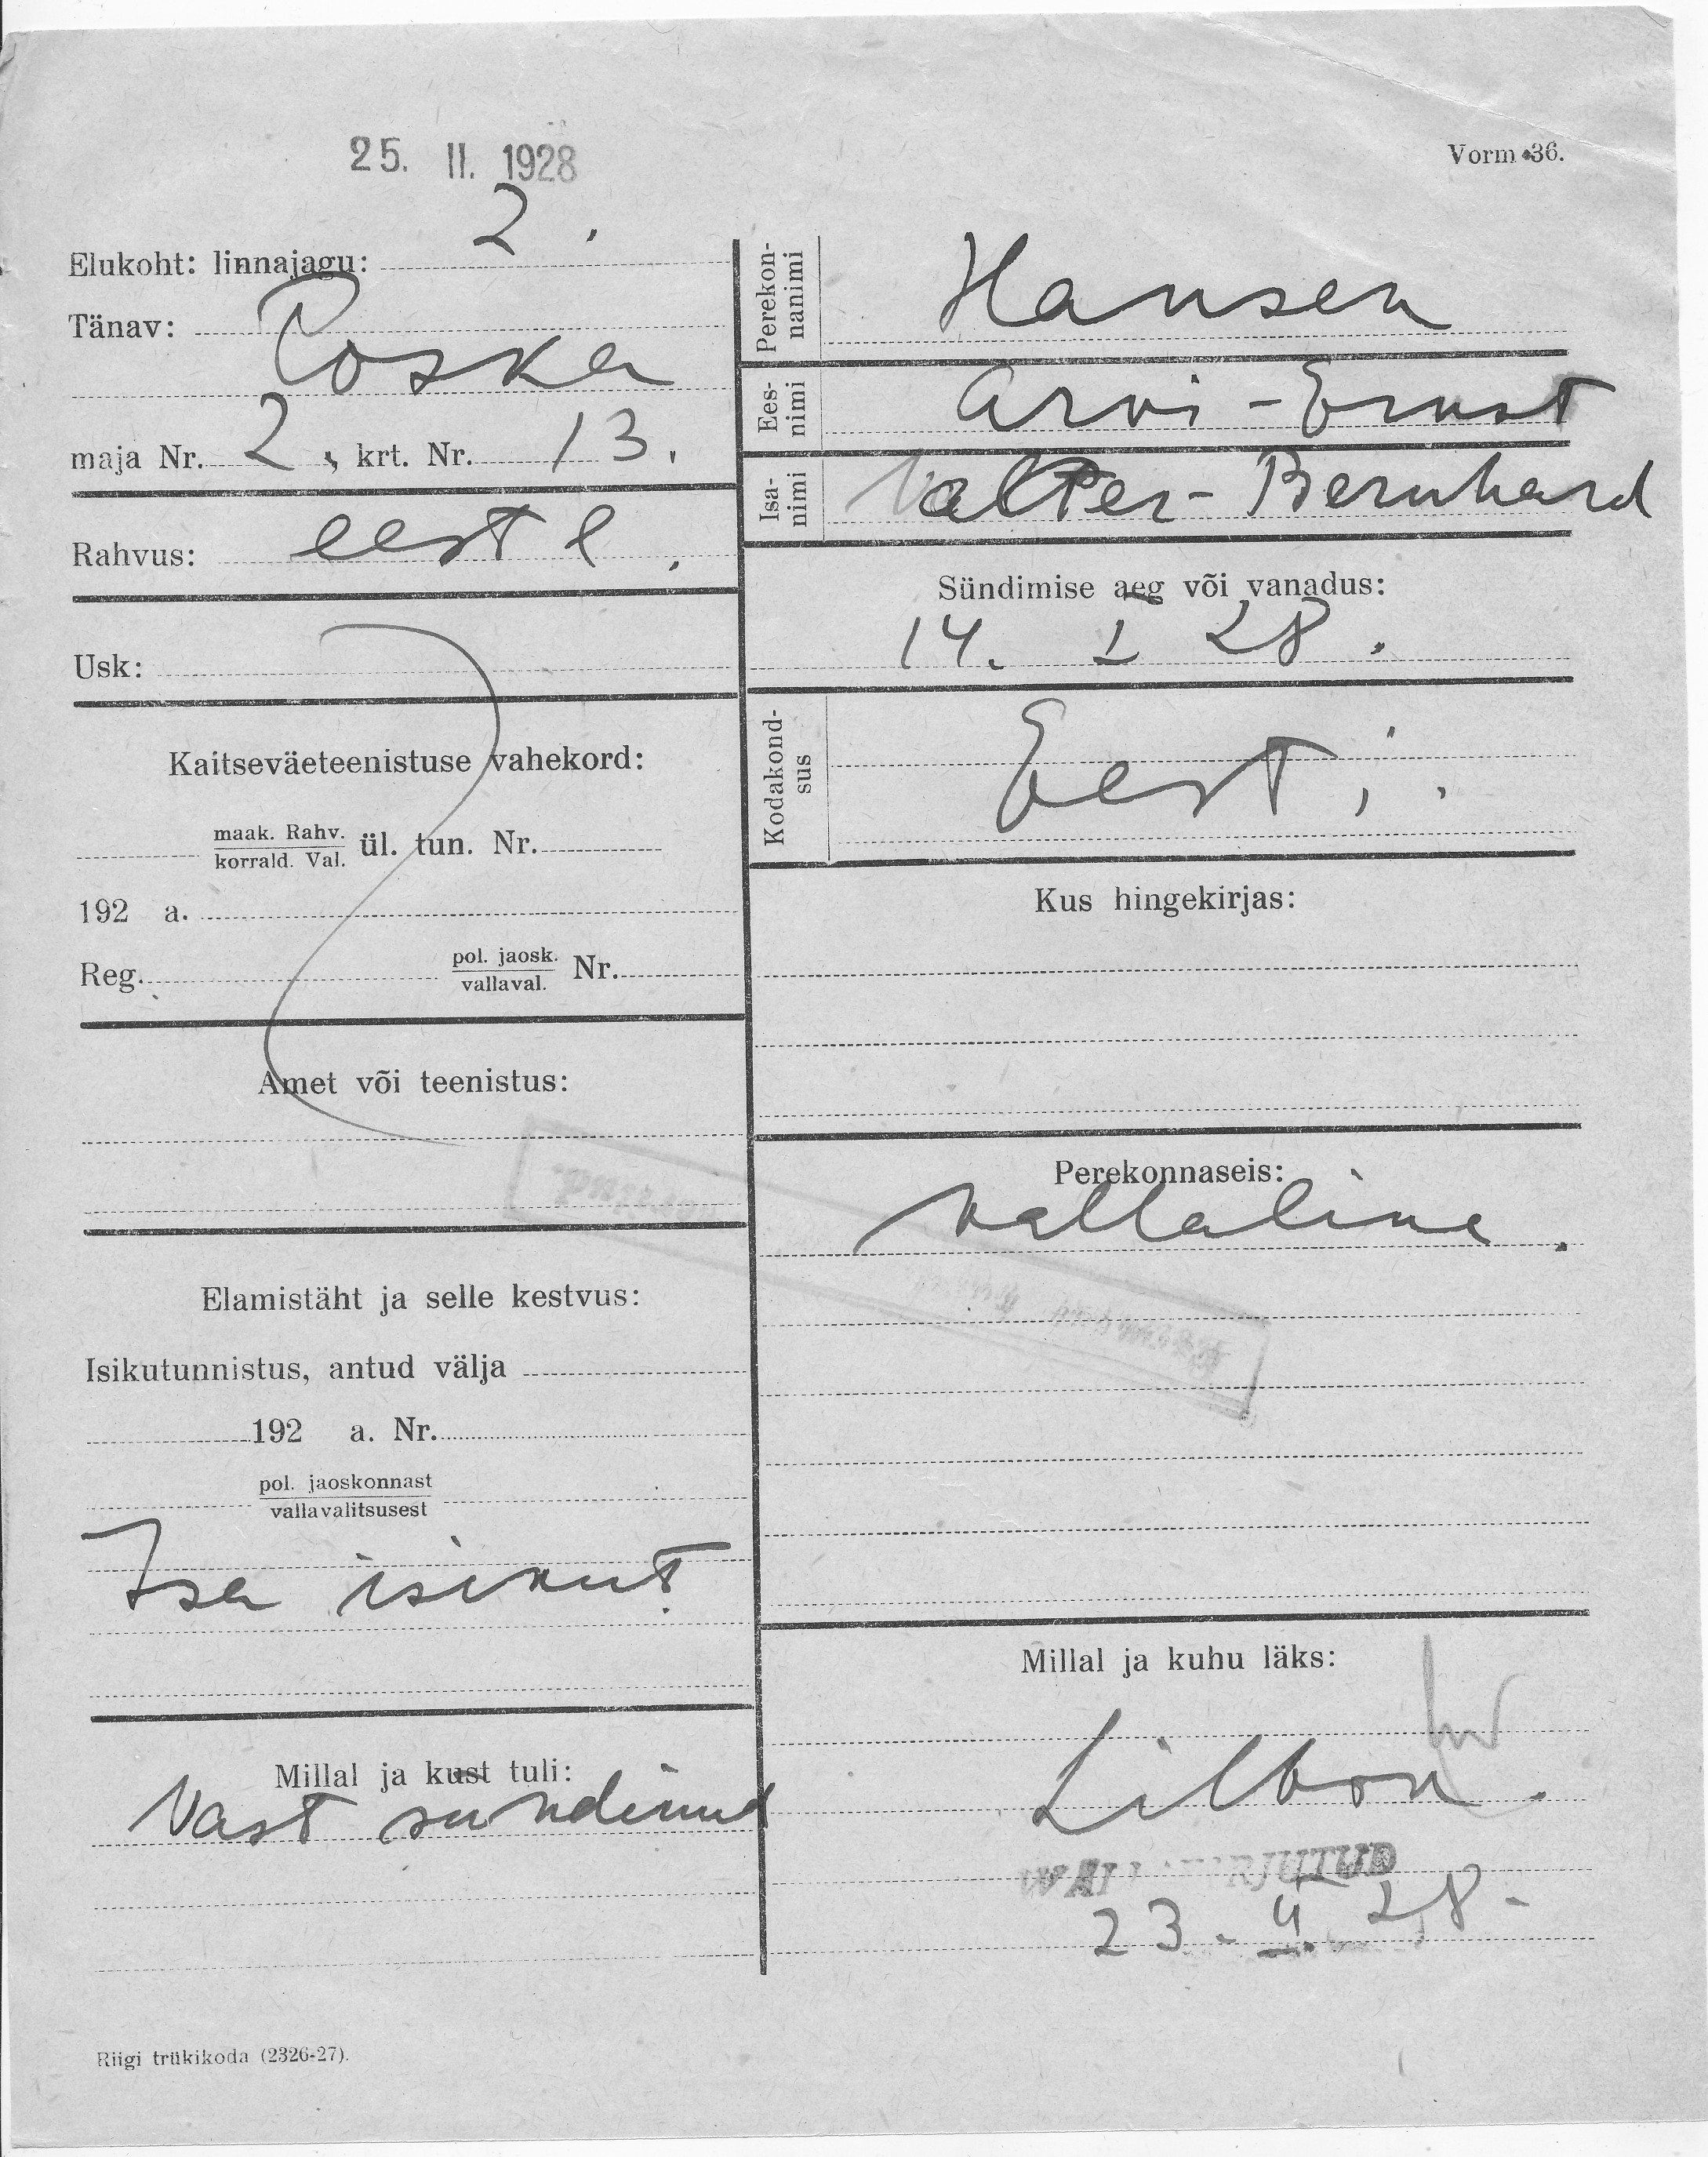 25. II. 1928
Vorm 36.
Elukoht: linnajagu: 2.
Tänav: Poska
maja Nr. 2, krt. Nr. 13.
Rahvus: eestl.
Usk:
Kaitseväeteenistuse vahekord:
maak. Rahv.
korrald. Val. ül. tun. Nr.
192 a.
Reg. pol. jaosk.
vallaval. Nr.
Amet või teenistus:
Elamistäht ja selle kestvus:
Isikutunnistus, antud välja
192 a. Nr.
pol. jaoskonnast
vallavalitsusest
Isa isikut
Millal ja kust tuli:
Vast sündinud
Perekon-
nanimi Hansen
Ees-
nimi Arvi-Ernst
Isa-
nimi Valter-Bernhard
Sündimise aeg või vanadus:
14. I 28.
Kodakond-
sus Eesti.
Kus hingekirjas:
Perekonnaseis:
vallaline.
Millal ja kuhu läks:
23. II 28-
Riigi trükikoda (2326-27).